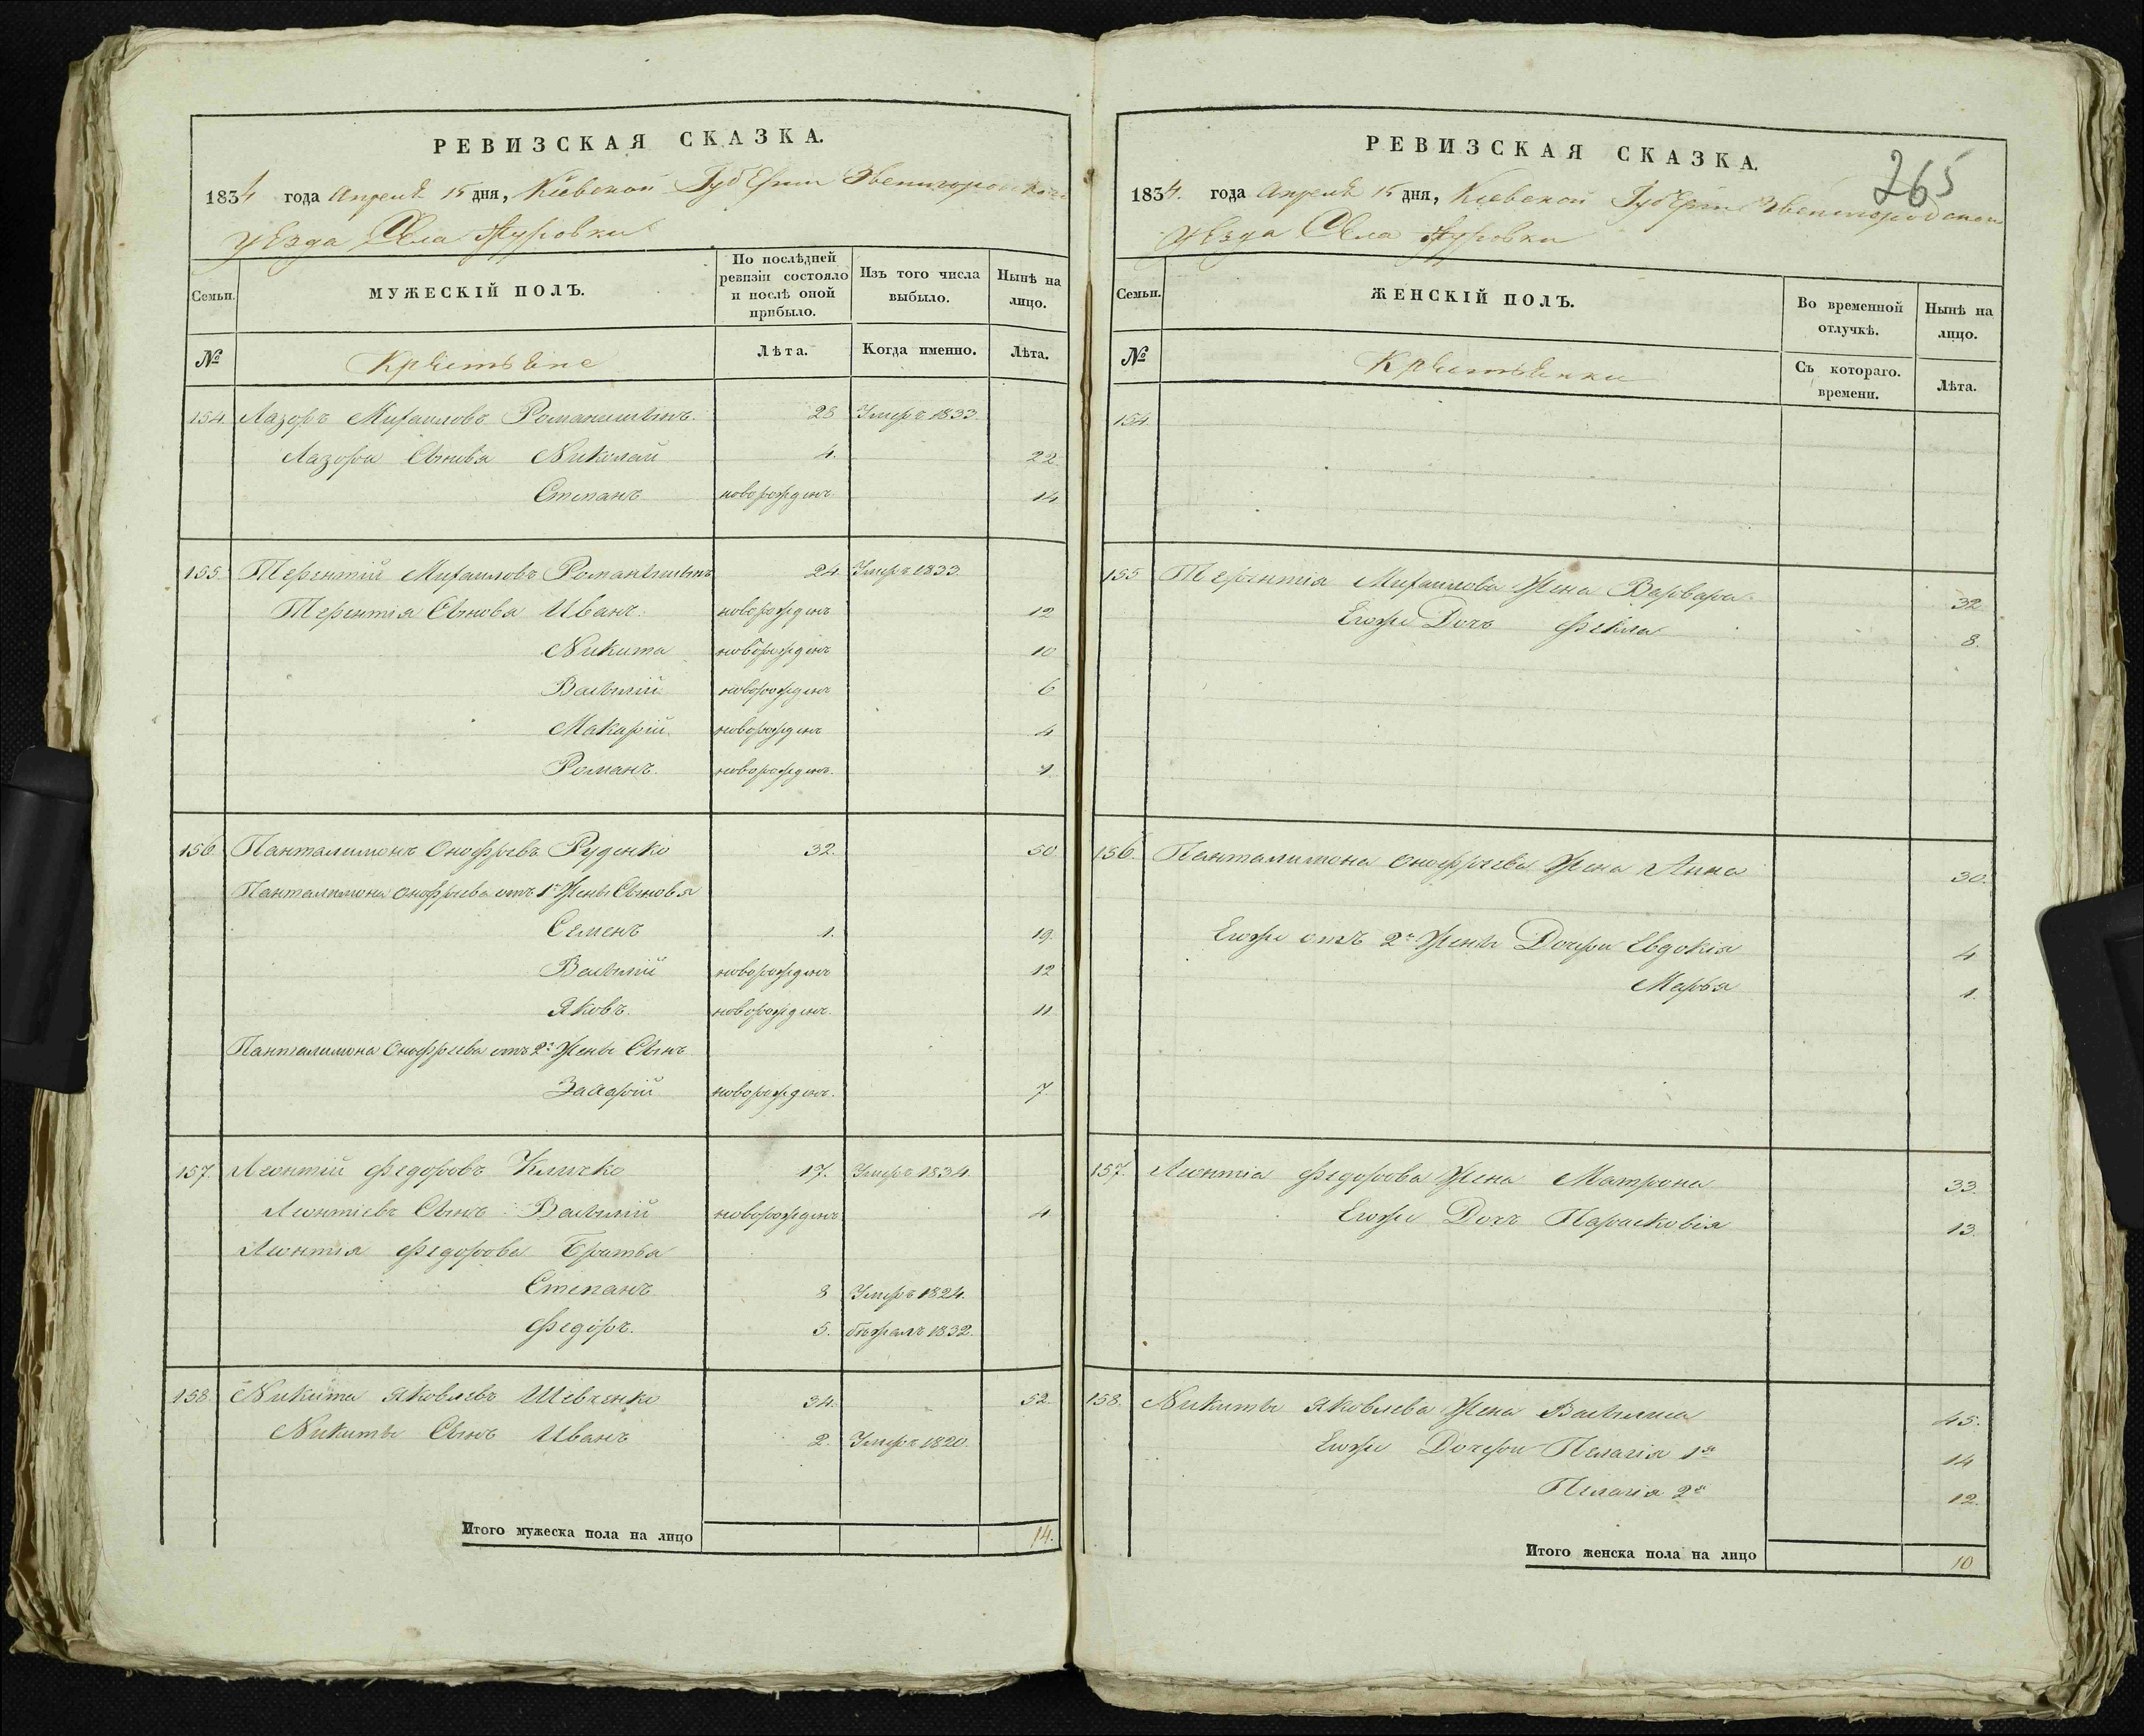 РЕВИЗСКАЯ СКАЗКА.
1834 года Апреля 15 дня, Киевской Губернии Звенигородского
уезда Села
Семьи.
МУЖЕСКІЙ ПОЛЪ.
По послѣдней ревизіи состояло и послѣ оной прибыло.
Изъ того числа выбыло.
Нынѣ на лицо.
№
Крестьяне
Лѣта.
Когда именно.
Лѣта.
154. Лазоръ Михаиловъ 28 Умеръ 1833.
Лазора Сыновя Николай 4. 22.
Степанъ новорожденъ 14
155. Терентій Михаиловъ 24 Умеръ 1833.
Терентія Сыновя Иванъ. новорожденъ 12
Никита новорожденъ 10
Василій новорожденъ 6
Макарій новорожденъ 4
Романъ. новорожденъ. 1.
156. Панталимонъ Онофріевъ Руденко 32. 50
Панталимона Онофріева отъ 1й Жены Сыновя
Семенъ 1. 19.
Василій новорожденъ 12
Яковъ. новорожденъ. 11.
Панталимона Онофріева отъ 2й Жены Сынъ
Захарій новорожденъ. 7.
157. Леонтій Федоровъ Кличко 17. Умеръ 1834.
Леонтіевъ Сынъ Василій новорожденъ 4
Леонтія Федорова Братья
Степанъ 8 Умеръ 1824.
Федоръ. 5. бежалъ 1832.
158. Никита Яковлевъ Шевченко 34. 52.
Никиты Сынъ Иванъ 2. Умеръ 1820.
Итого мужеска пола на лицо 14.
РЕВИЗСКАЯ СКАЗКА.
265
1834. года Апреля 15 дня, Киевской Губернии Звенигородского
Уезда Села
Семьи.
ЖЕНСКІЙ ПОЛЪ.
Во временной отлучкѣ.
Нынѣ на лицо.
№
Крестьянки
Съ котораго. времени.
Лѣта.
154.
155 Терентія Михаилова Жена Варвара 32
Егоже Дочь Фекла 8.
156. Панталимона Онофріева Жена Анна 30.
Егоже отъ 2й Жены Дочери Евдокія 4
Марья 1.
157. Леонтія Федорова Жена Матрона 33.
Егоже Дочь Парасковія 13.
158. Никиты Яковлева Жена Василиса 45.
Егоже Дочери Пелагія 1я 14
Пелагія 2я 12.
Итого женска пола на лицо 10